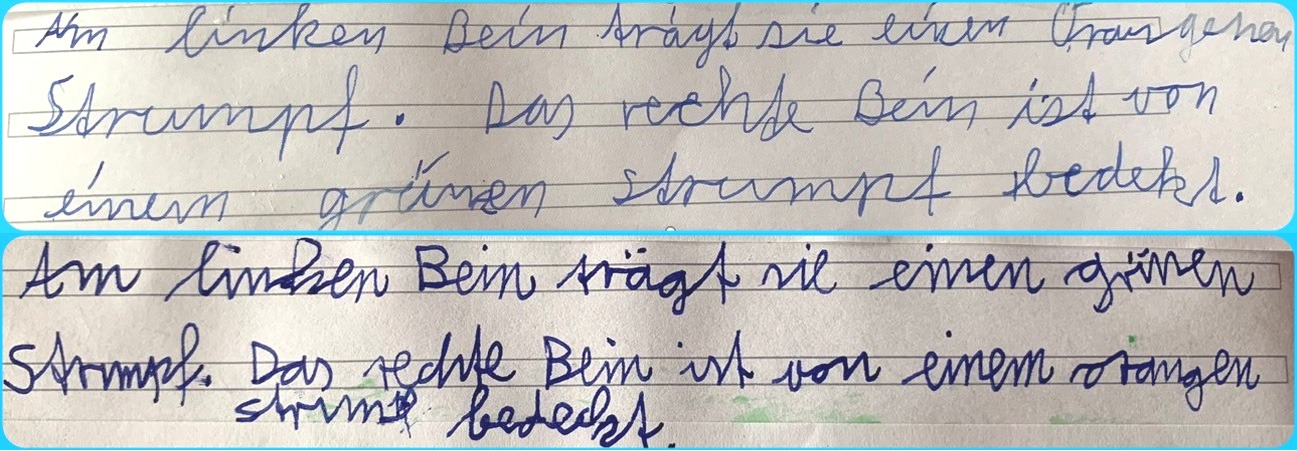 Am linken Bein trägt sie einen Orangenen
Strumpf. Das rechte Bein ist von
einem grünen strumpf bedekt.
Am linken Bein trägt sie einen grünen
Strmpf. Das rechte Bein ist von einem orangen
strumf bedeckt.